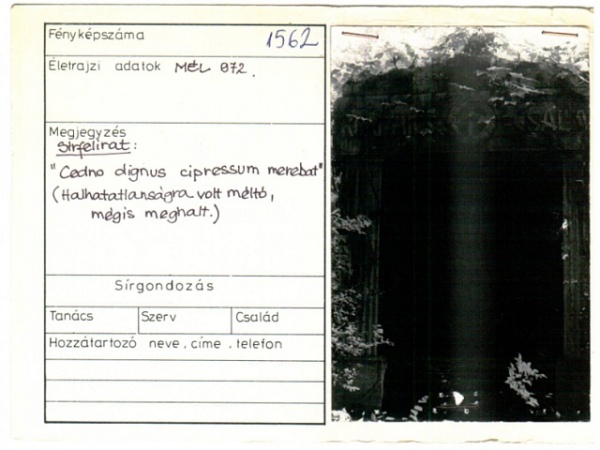 Fényképszáma 1562
Életrajzi adatok MÉL 072.
Megjegyzés
Sírfelirat:
"Cedro dignus cipressum merebat"
(Halhatatlanságra volt méltó,
mégis meghalt.)
Sírgondozás
Tanács Szerv Család
Hozzátartozó neve, címe, telefon